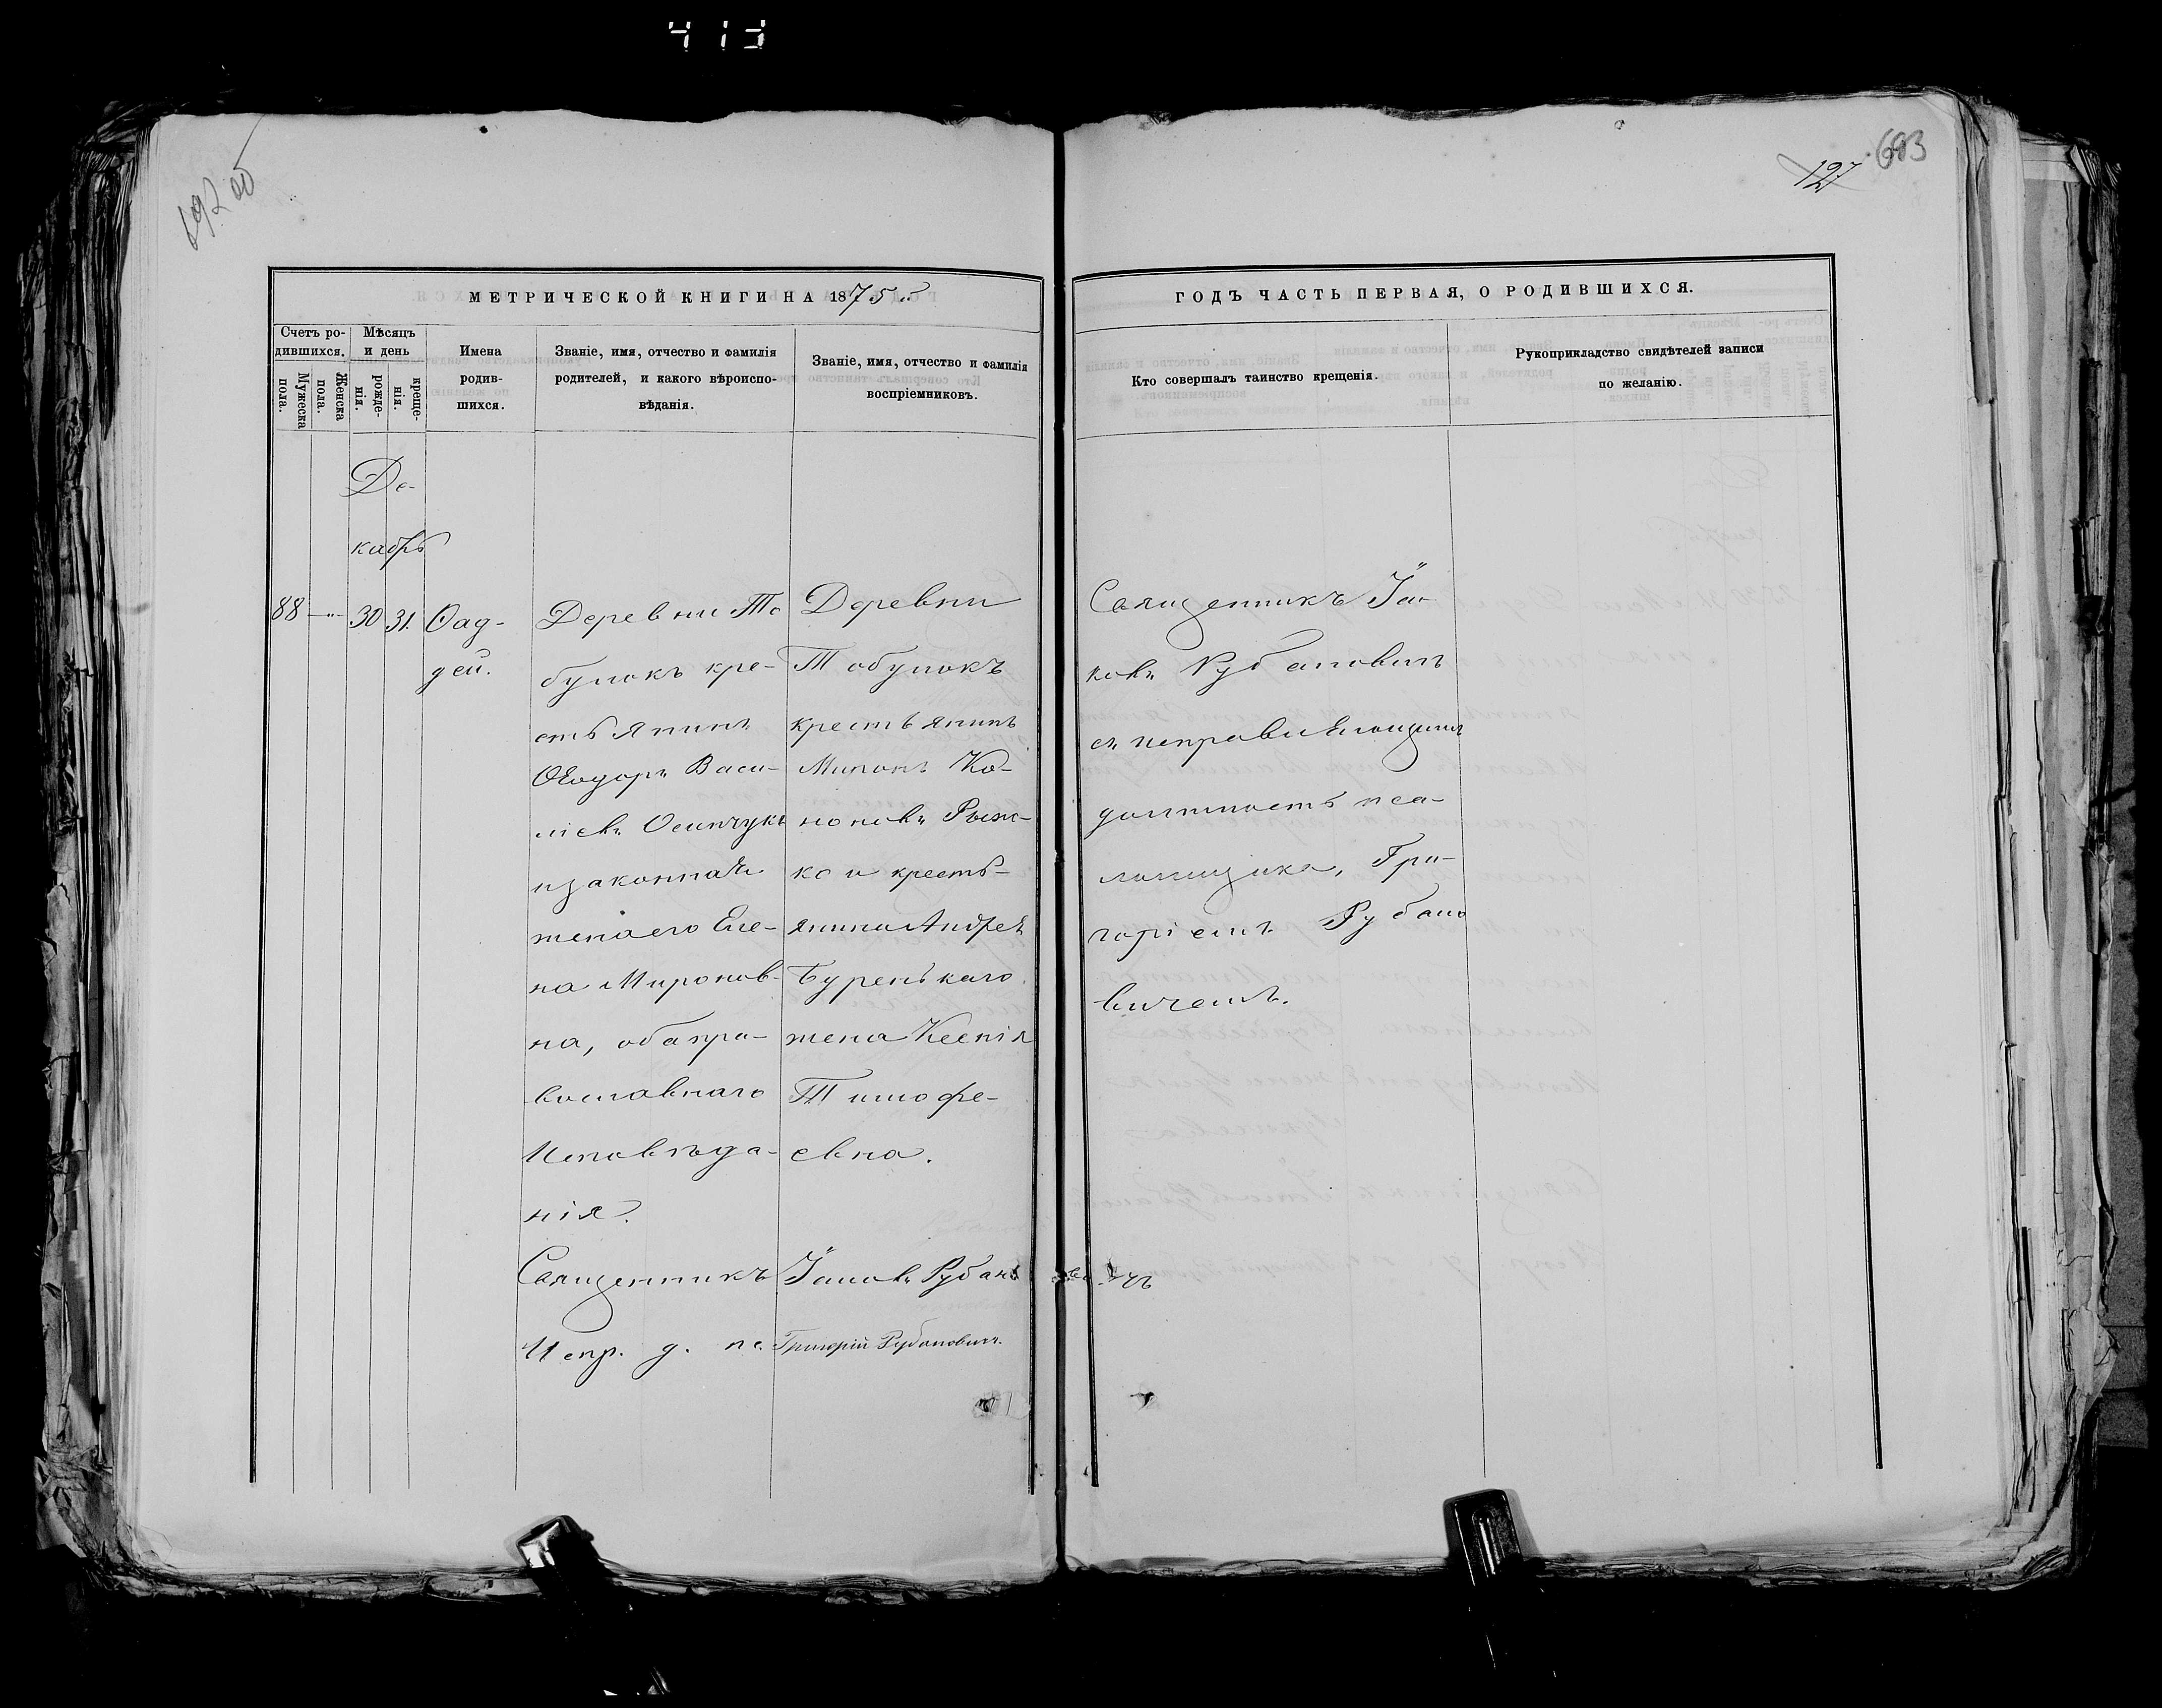 413
692 об
127 693
МЕТРИЧЕСКОЙ КНИГИ НА 1875й
Счетъ ро-
дившихся.
Мужеска
пола.
Женска
пола.
Мѣсяцъ
и день
рожде-
нія.
креще-
нія.
Имена
родив-
шихся.
Званіе, имя, отчество и фамилія
родителей, и какого вѣроиспо-
вѣданія.
Званіе, имя, отчество и фамилія
воспріемниковъ.
ГОДЪ ЧАСТЬ ПЕРВАЯ, О РОДИВШИХСЯ.
Кто совершалъ таинство крещенія.
Рукоприкладство свидѣтелей записи
по желанію.
Де-
кабрь
88 — 30 31.
Ѳад-
дей.
Деревни То
булокъ кре-
стьянинъ
Ѳеодоръ Васи-
ліевъ Осипчукъ
и законная
жена его Еле-
на Миронов-
на, оба пра-
вославнаго
Исповѣда-
нія.
Деревни
Тобулокъ
крестьянинъ
Ко-
ноновъ Рыж-
ко и кресть-
янина Андрея
Буренькаго
жена Ксенія
Тимофе-
евна.
Священникъ Іа-
ковъ Рубановичъ
съ исправляющимъ
должность пса-
ломщика, Гри-
горіемъ Рубано
вичемъ.
Священникъ Іаковъ Рубановичъ
Испр. д. пс. Григорій Рубановичъ.